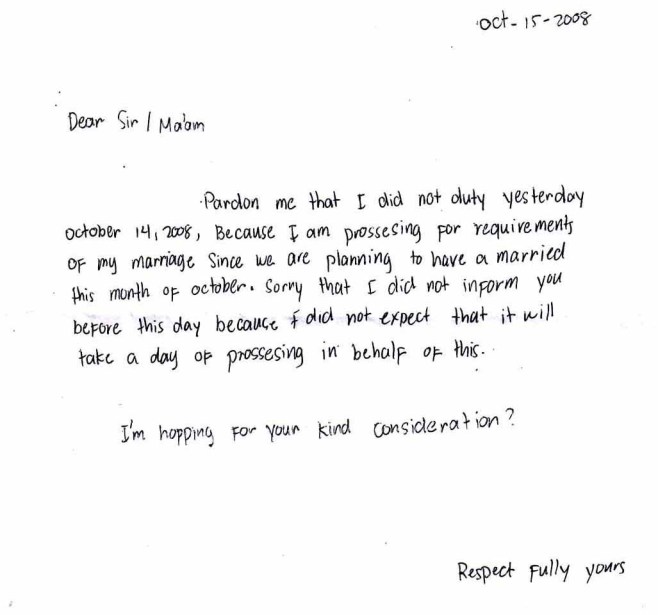 oct-15-2008
Dear Sir / Ma'am
Pardon me that I did not duty yesterday
october 14, 2008, Because I am prossesing for requirements
of my marriage Since we are planning to have a married
this month of october. Sorry that I did not inform you
before this day because I did not expect that it will
take a day of prossesing in behalf of this.
I'm hopping for your kind consideration?
Respect fully yours